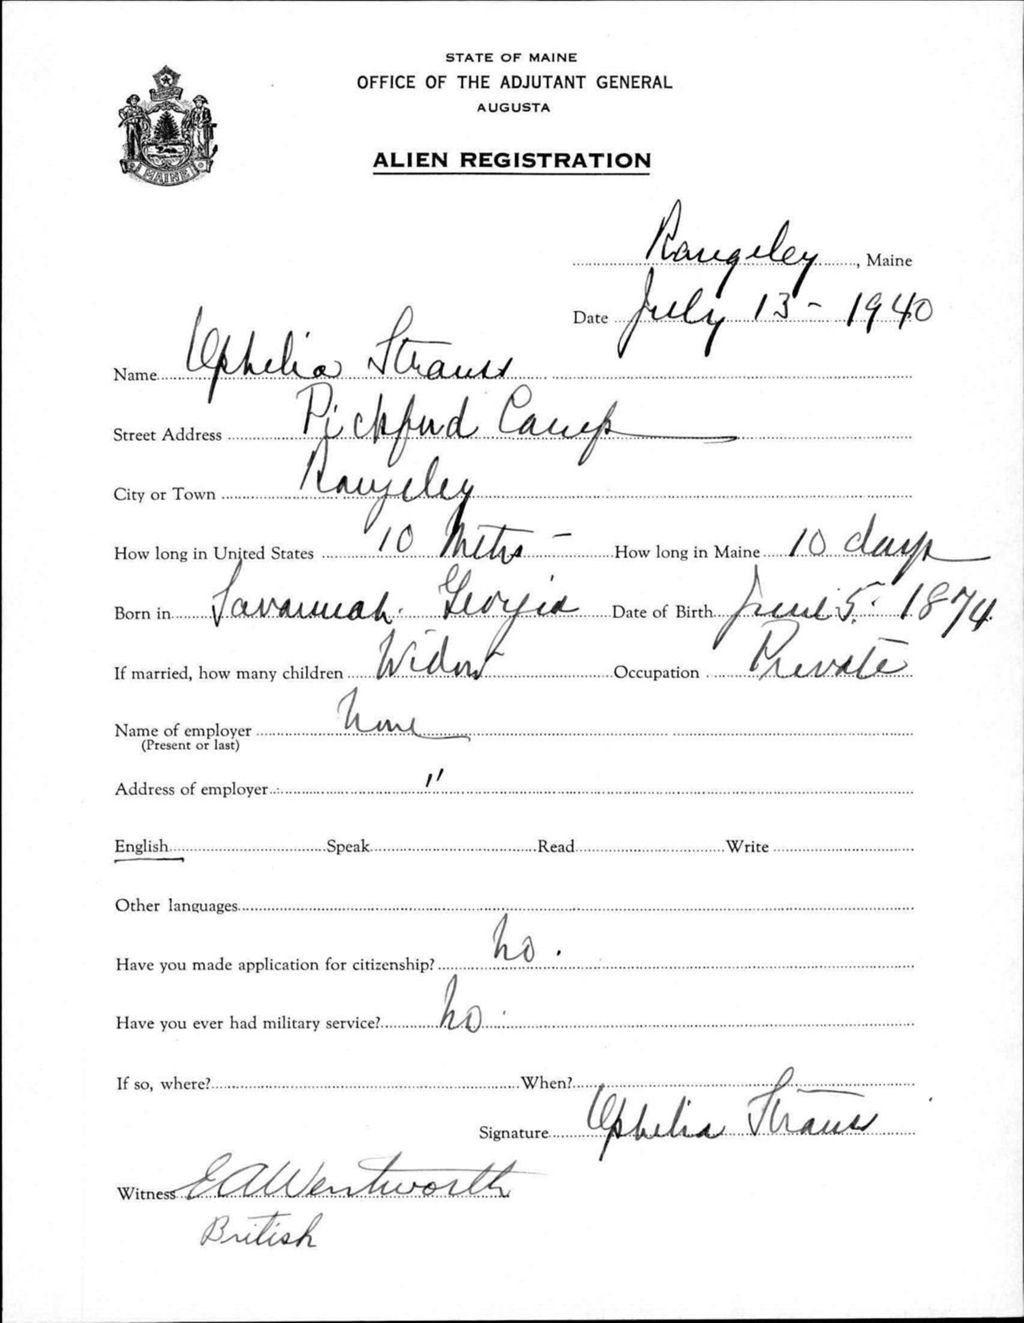 STATE OF MAINE
OFFICE OF THE ADJUTANT GENERAL
AUGUSTA
MAINE
ALIEN REGISTRATION
Rangeley, Maine
Date July 13 - 1940
Name Ophelia Strauss
Street Address Pickford Camp
City or Town Rangeley
How long in United States 10 Mths - How long in Maine 10 days
Born in Savannah. Georgia Date of Birth June 5. 1874
If married, how many children Widow Occupation Private
Name of employer None
(Present or last)
Address of employer "
English Speak Read Write
Other languages
Have you made application for citizenship? No.
Have you ever had military service? No.
If so, where? When?
Signature Ophelia Strauss
Witness E A Wentworth
British